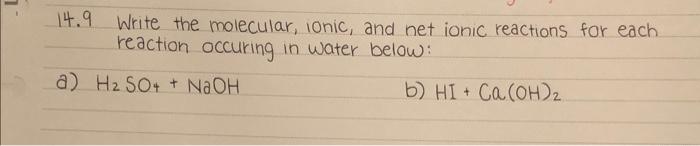 14.9 Write the molecular, ionic, and net ionic reactions for each
reaction occuring in water below:
a) H2SO4 + NaOH b) HI + Ca(OH)2